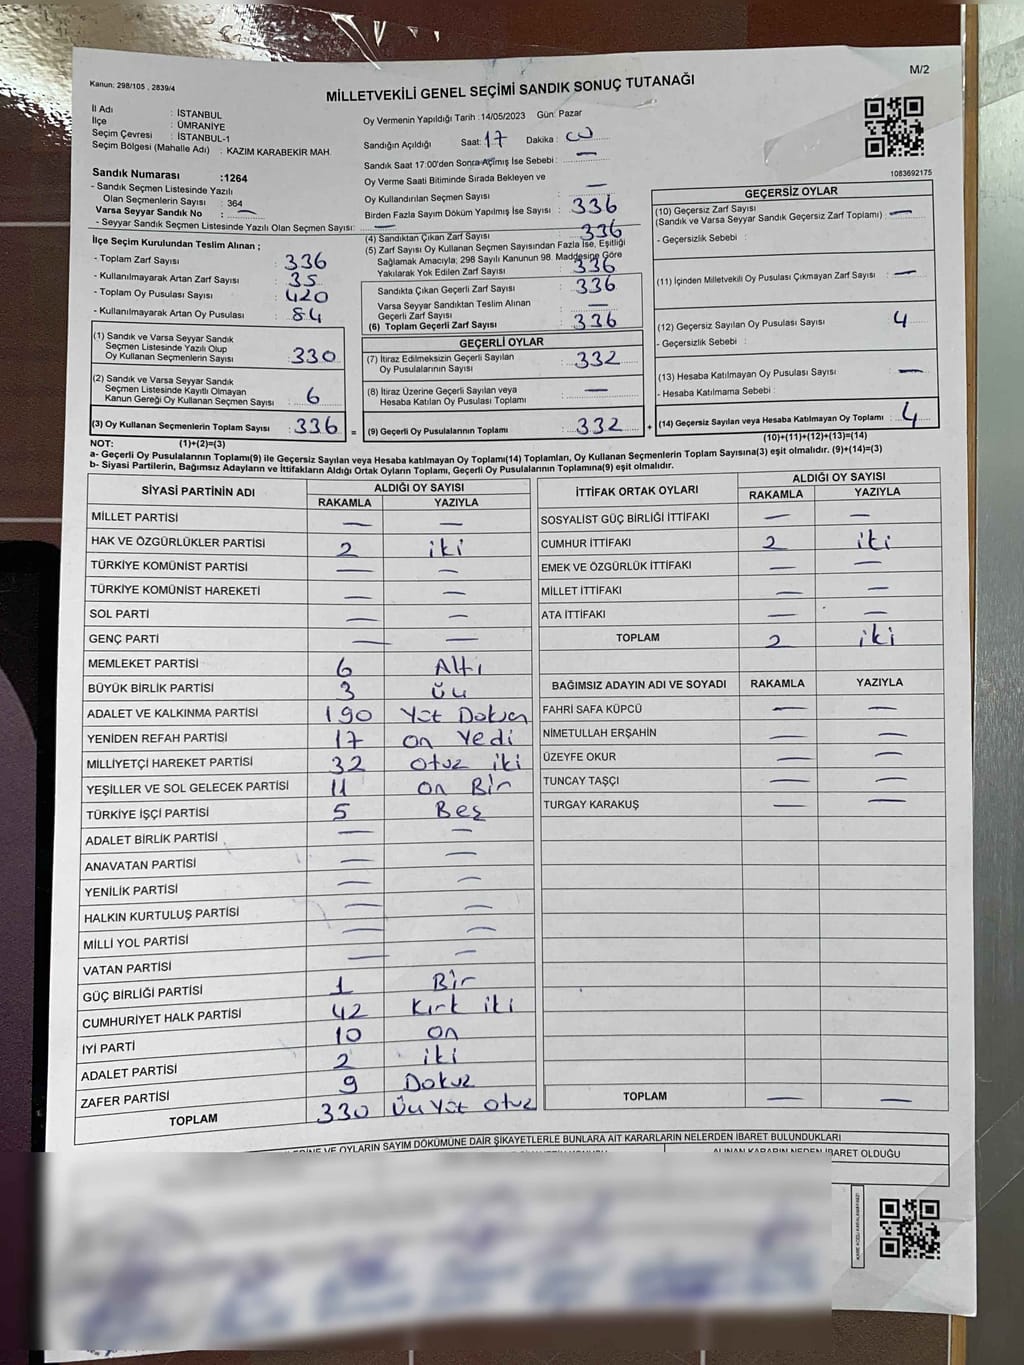 Kanun: 298/105 , 2839/4
MİLLETVEKİLİ GENEL SEÇİMİ SANDIK SONUÇ TUTANAĞI
M/2
İl Adı : İSTANBUL
İlçe : ÜMRANİYE
Seçim Çevresi : İSTANBUL-1
Seçim Bölgesi (Mahalle Adı) : KAZIM KARABEKİR MAH.
Sandık Numarası :1264
- Sandık Seçmen Listesinde Yazılı
Olan Seçmenlerin Sayısı : 364
Varsa Seyyar Sandık No : —
- Seyyar Sandık Seçmen Listesinde Yazılı Olan Seçmen Sayısı: —
Oy Vermenin Yapıldığı Tarih :14/05/2023 Gün: Pazar
Sandığın Açıldığı Saat: 17 Dakika :
Sandık Saat 17:00'den Sonra Açılmış İse Sebebi : —
Oy Verme Saati Bitiminde Sırada Bekleyen ve
Oy Kullandırılan Seçmen Sayısı —
Birden Fazla Sayım Döküm Yapılmış İse Sayısı : 336
1083692175
İlçe Seçim Kurulundan Teslim Alınan ;
- Toplam Zarf Sayısı : 336
- Kullanılmayarak Artan Zarf Sayısı : 35
- Toplam Oy Pusulası Sayısı : 420
- Kullanılmayarak Artan Oy Pusulası : 84
(1) Sandık ve Varsa Seyyar Sandık
Seçmen Listesinde Yazılı Olup
Oy Kullanan Seçmenlerin Sayısı : 330
(2) Sandık ve Varsa Seyyar Sandık
Seçmen Listesinde Kayıtlı Olmayan
Kanun Gereği Oy Kullanan Seçmen Sayısı : 6
(3) Oy Kullanan Seçmenlerin Toplam Sayısı : 336 =
(4) Sandıktan Çıkan Zarf Sayısı : 336
(5) Zarf Sayısı Oy Kullanan Seçmen Sayısından Fazla İse, Eşitliği
Sağlamak Amacıyla; 298 Sayılı Kanunun 98. Maddesine Göre
Yakılarak Yok Edilen Zarf Sayısı : 336
Sandıkta Çıkan Geçerli Zarf Sayısı : 336
Varsa Seyyar Sandıktan Teslim Alınan
Geçerli Zarf Sayısı : —
(6) Toplam Geçerli Zarf Sayısı : 336
GEÇERLİ OYLAR
(7) İtiraz Edilmeksizin Geçerli Sayılan
Oy Pusulalarının Sayısı : 332
(8) İtiraz Üzerine Geçerli Sayılan veya
Hesaba Katılan Oy Pusulası Toplamı : —
(9) Geçerli Oy Pusulalarının Toplamı : 332 +
GEÇERSİZ OYLAR
(10) Geçersiz Zarf Sayısı
(Sandık ve Varsa Seyyar Sandık Geçersiz Zarf Toplamı) : —
- Geçersizlik Sebebi :
(11) İçinden Milletvekili Oy Pusulası Çıkmayan Zarf Sayısı : —
(12) Geçersiz Sayılan Oy Pusulası Sayısı : 4
- Geçersizlik Sebebi :
(13) Hesaba Katılmayan Oy Pusulası Sayısı : —
- Hesaba Katılmama Sebebi :
(14) Geçersiz Sayılan veya Hesaba Katılmayan Oy Toplamı : 4
NOT: (1)+(2)=(3) (10)+(11)+(12)+(13)=(14)
a- Geçerli Oy Pusulalarının Toplamı(9) ile Geçersiz Sayılan veya Hesaba katılmayan Oy Toplamı(14) Toplamları, Oy Kullanan Seçmenlerin Toplam Sayısına(3) eşit olmalıdır. (9)+(14)=(3)
b- Siyasi Partilerin, Bağımsız Adayların ve İttifakların Aldığı Ortak Oyların Toplamı, Geçerli Oy Pusulalarının Toplamına(9) eşit olmalıdır.
SİYASİ PARTİNİN ADI ALDIĞI OY SAYISI
RAKAMLA YAZIYLA
MİLLET PARTİSİ — —
HAK VE ÖZGÜRLÜKLER PARTİSİ 2 iki
TÜRKİYE KOMÜNİST PARTİSİ — —
TÜRKİYE KOMÜNİST HAREKETİ — —
SOL PARTİ — —
GENÇ PARTİ — —
MEMLEKET PARTİSİ 6 Altı
BÜYÜK BİRLİK PARTİSİ 3 Üç
ADALET VE KALKINMA PARTİSİ 190 Yüz Doksan
YENİDEN REFAH PARTİSİ 17 on Yedi
MİLLİYETÇİ HAREKET PARTİSİ 32 otuz iki
YEŞİLLER VE SOL GELECEK PARTİSİ 11 on Bir
TÜRKİYE İŞÇİ PARTİSİ 5 Beş
ADALET BİRLİK PARTİSİ — —
ANAVATAN PARTİSİ — —
YENİLİK PARTİSİ — —
HALKIN KURTULUŞ PARTİSİ — —
MİLLİ YOL PARTİSİ — —
VATAN PARTİSİ — —
GÜÇ BİRLİĞİ PARTİSİ 1 Bir
CUMHURİYET HALK PARTİSİ 42 Kırk iki
İYİ PARTİ 10 on
ADALET PARTİSİ 2 iki
ZAFER PARTİSİ 9 Dokuz
TOPLAM 330 Üç Yüz otuz
İTTİFAK ORTAK OYLARI ALDIĞI OY SAYISI
RAKAMLA YAZIYLA
SOSYALİST GÜÇ BİRLİĞİ İTTİFAKI — —
CUMHUR İTTİFAKI 2 iki
EMEK VE ÖZGÜRLÜK İTTİFAKI — —
MİLLET İTTİFAKI — —
ATA İTTİFAKI — —
TOPLAM 2 iki
BAĞIMSIZ ADAYIN ADI VE SOYADI RAKAMLA YAZIYLA
FAHRİ SAFA KÜPCÜ — —
NİMETULLAH ERŞAHİN — —
ÜZEYFE OKUR — —
TUNCAY TAŞÇI — —
TURGAY KARAKUŞ — —
TOPLAM — —
VE OYLARIN SAYIM DÖKÜMÜNE DAİR ŞİKAYETLERLE BUNLARA AİT KARARLARIN NELERDEN İBARET BULUNDUKLARI
ALINAN KARARIN NEDEN İBARET OLDUĞU